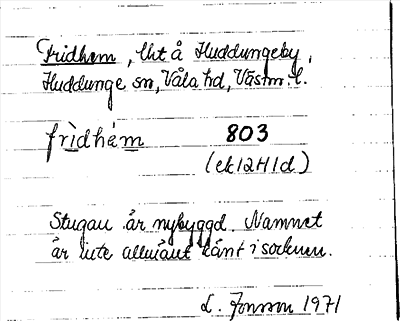 Fridhem, lht å Huddungeby,
Huddunge sn, Våla hd, Västm. l.
frìdhém 803
(ek 12H1d)
Stugan är nybyggd. Namnet
är inte allmänt känt i socknen.
L. Jonsson 1971